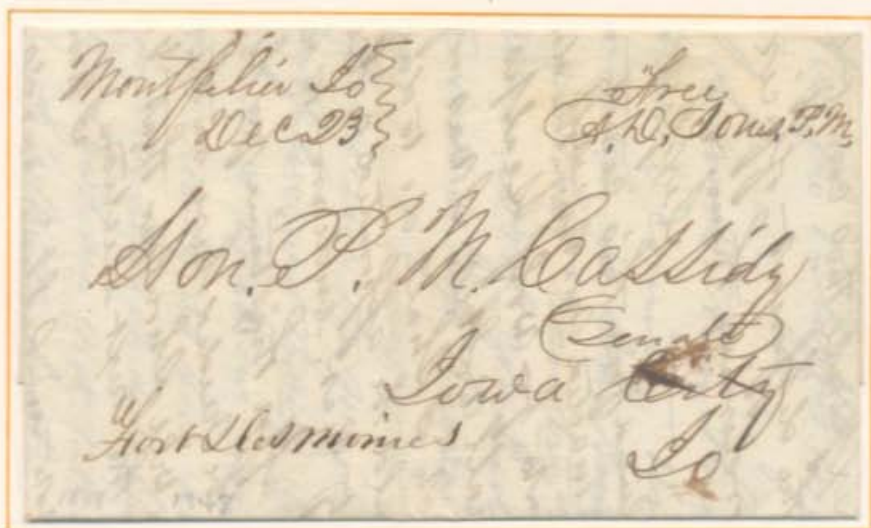 Montpelier Io
Dec 23
Free
A. D. Jones, P. M.
Hon. P. M. Cassidy
(Senate)
Iowa City
Io
Fort Des Moines